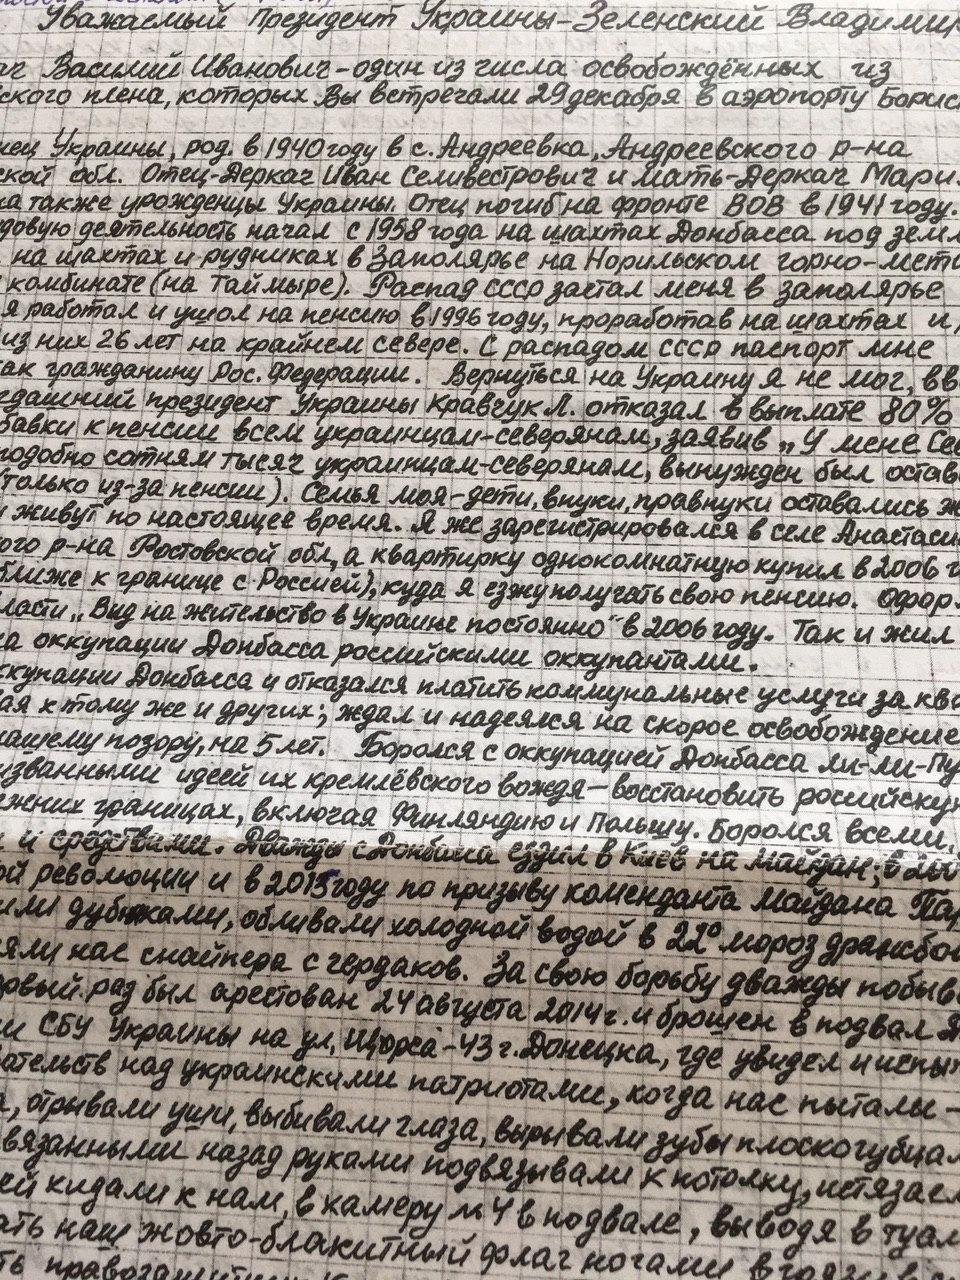 Уважаемый президент Украины-Зеленский Владимир
ач Василий Иванович-один из числа освобождённых из
ского плена, которых Вы встречали 29 декабря в аэропорту Борис
нец Украины, род. в 1940 году в с. Андреевка, Андреевского р-на
ской обл. Отец-Деркач Иван Селивестрович и мать-Деркач Мари
на также урожденцы Украины. Отец погиб на фронте ВОВ в 1941 году.
довую деятельность начал с 1958 года на шахтах Донбасса под земл
на шахтах и рудниках в Заполярье на Норильском горно-мета
комбинате (на Таймыре). Распад СССР застал меня в заполярье
я работал и ушол на пенсию в 1996 году, проработав на шахтах и
из них 26 лет на крайнем севере. С распадом СССР паспорт мне
как гражданину Рос. Федерации. Вернуться на Украину я не мог, вв
гдашний президент Украины Кравчук Л. отказал в выплате 80%
бавки к пенсии всем украинцам-северянам, заявив „У мене Сев
подобно сотням тысяч украинцам-северянам, вынужден был остав
(только из-за пенсии). Семья моя-дети, внуки, правнуки оставались ж
и живут по настоящее время. Я же зарегистрировался в селе Анастаси
ого р-на Ростовской обл, а квартирку однокомнатную купил в 2006 г
ближе к границе с Россией), куда я езжу получать свою пенсию. Офор
ласти „Вид на жительство в Украине постоянно" в 2006 году. Так и жил
ла оккупации Донбасса российскими оккупантами.
ккупации Донбасса и отказался платить коммунальные услуги за ква
ая к тому же и других; ждал и надеялся на скорое освобождение
нашему позору, на 5 лет. Боролся с оккупацией Донбасса ли-ли-Пу
изванными идеей их кремлёвского вождя-восстановить российску
жних границах, включая Финляндию и Польшу. Боролся всеми
и средствами. Дважды с Донбасса ездил в Киев на майдан; в
ой революции и в 2015 году по призыву коменданта майдана Пар
или дубинками, обливали холодной водой в 22° мороз
яли нас снайпера с чердаков. За свою борьбу дважды побыв
рвый раз был арестован 24 августа 2014 г. и брошен в подвал
ии СБУ Украины на ул. Щорса-43 г. Донецка, где увидел и испы
ательств над украинскими патриотами, когда нас пытали-
а, отрывали уши, выбивали глаза, вырывали зубы плоскогубца
связанными назад руками подвязывали к потолку, истязае
ей кидали к нам, в камеру №4 в подвале, выводя в туал
ать наш жовто-блакитный флаг ногами
ть